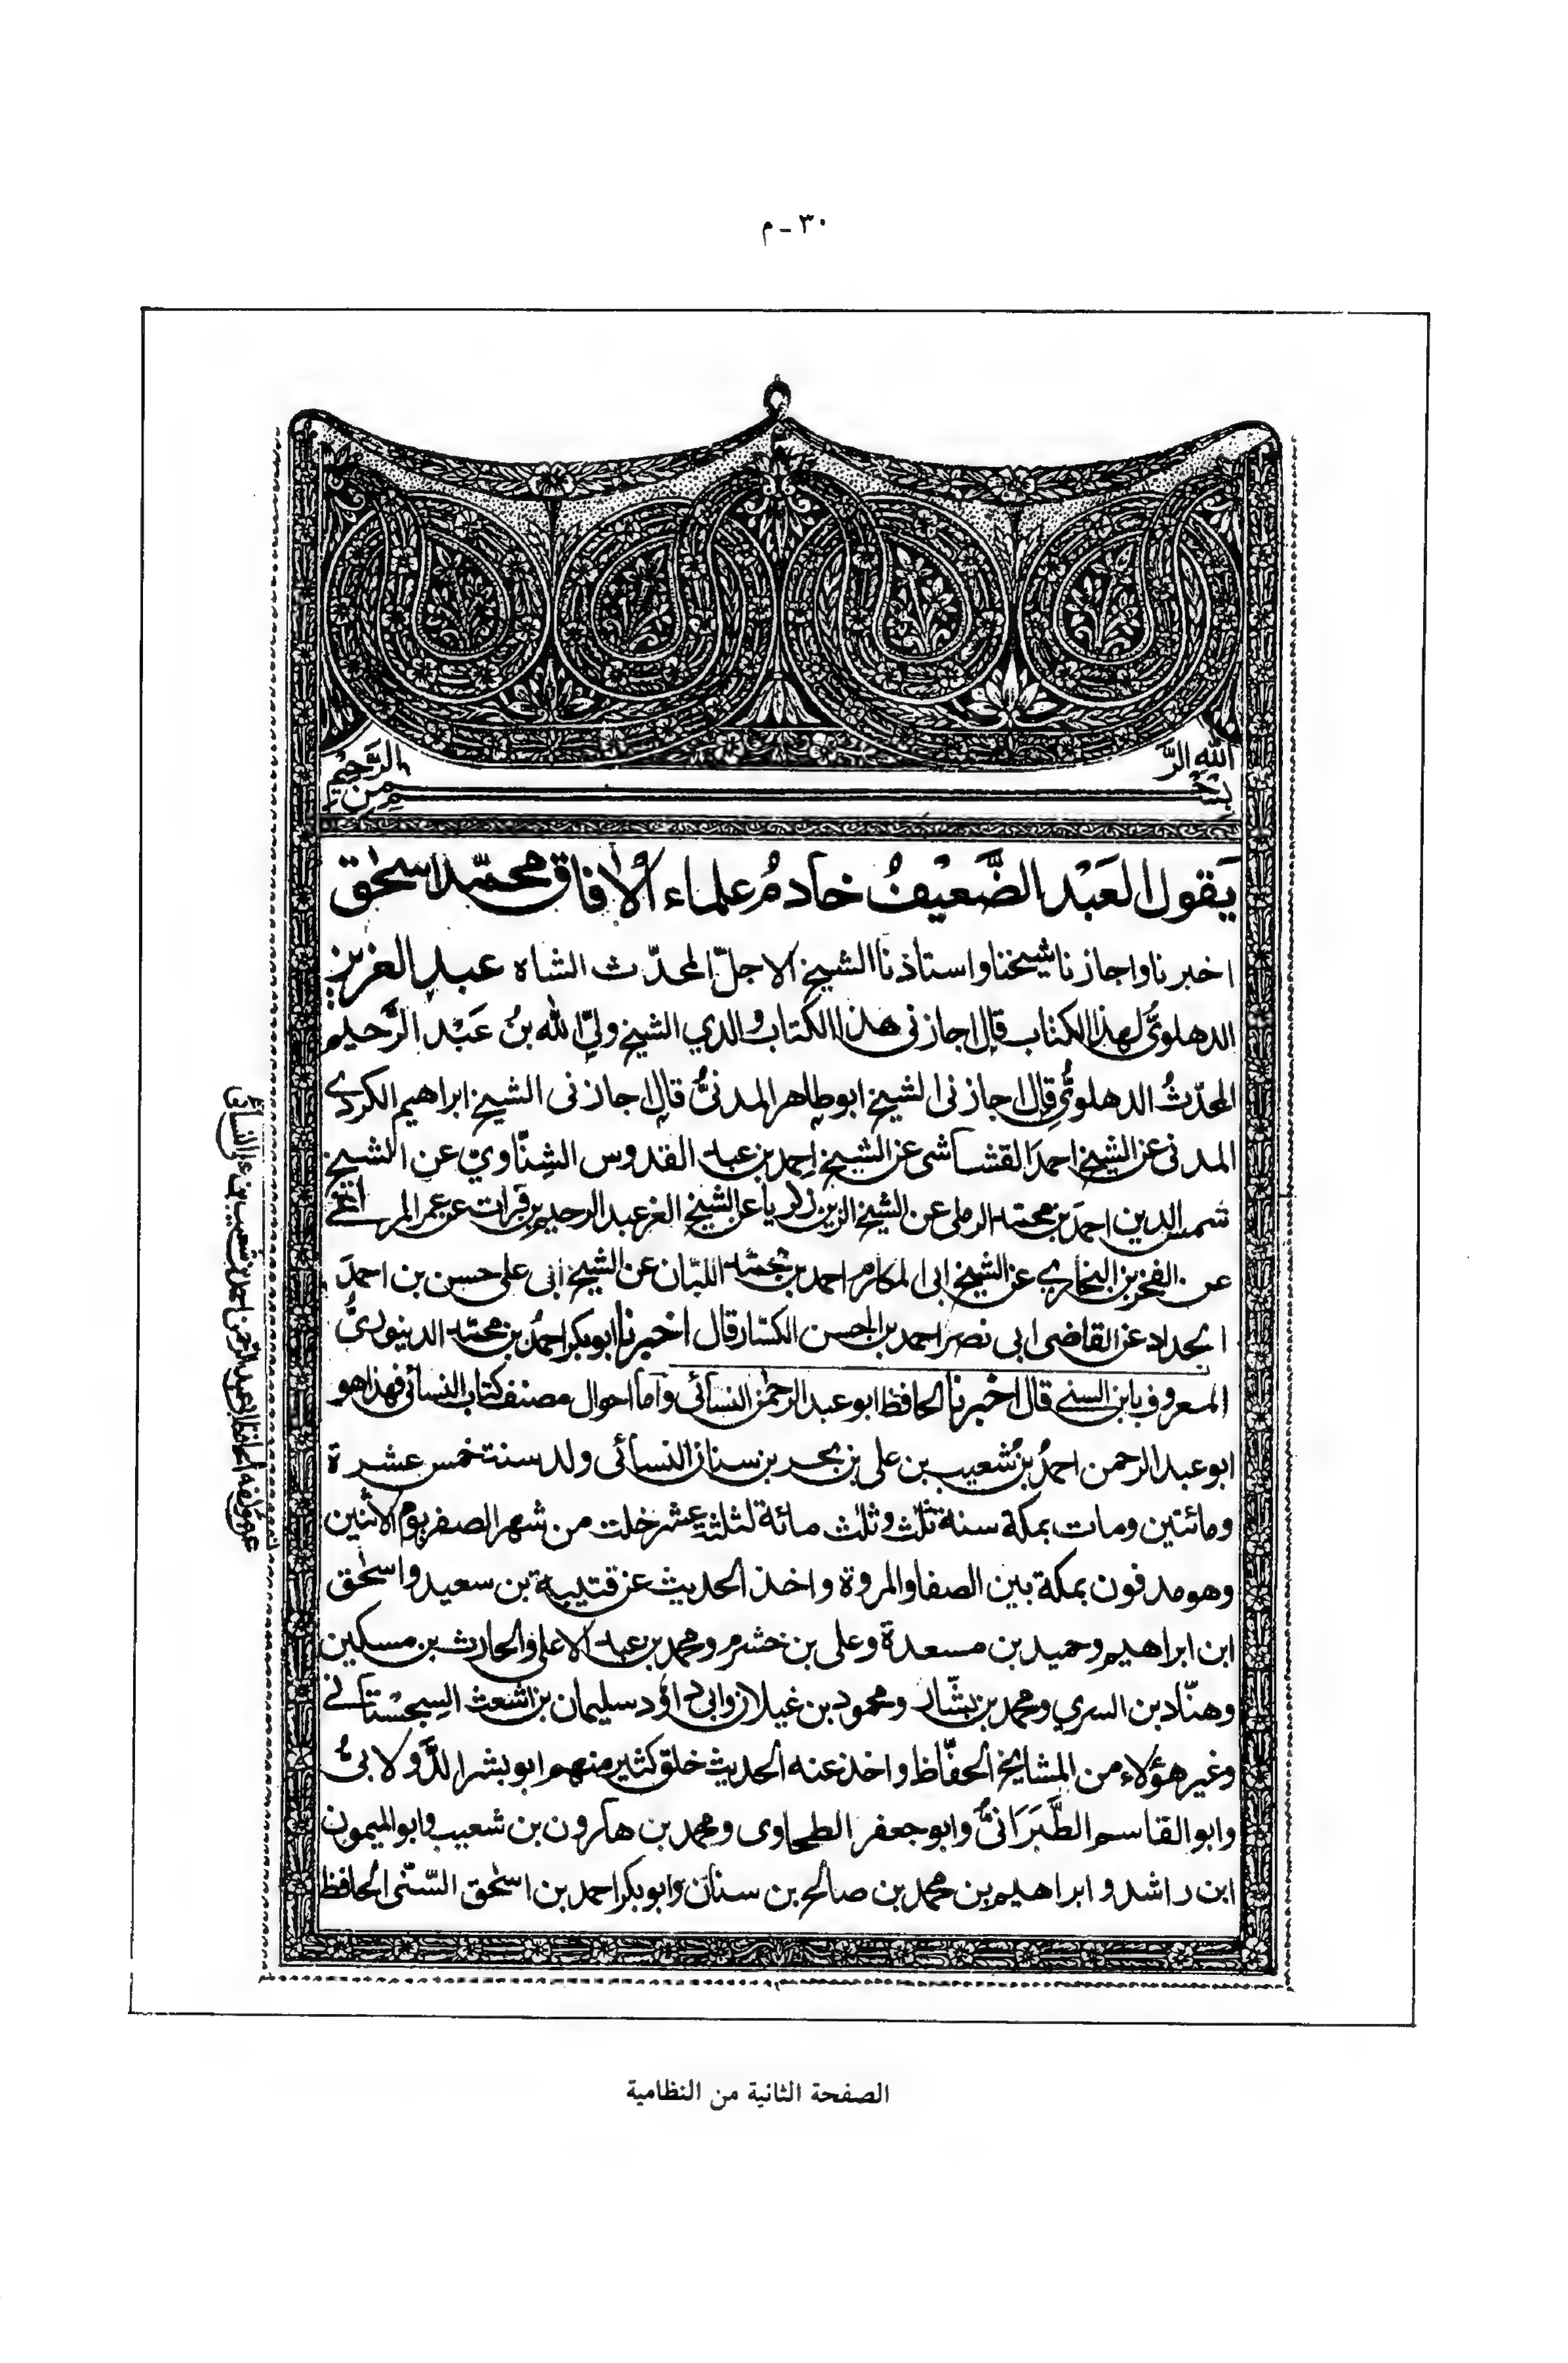 ٣٠ - م
بسم الله الرحمن الرحيم
يَقول العَبْد الضَّعِيفُ خادمُ علماء الأٰفاق محمّد اسحٰق
اخبرنا واجازنا شيخنا واستاذنا الشيخ الاجلّ المحدّث الشاه عبد العزيز
الدهلويُّ لهذا الكتاب قال اجازنى هذا الكتاب والدي الشيخ وليّ الله بنُ عَبْد الرَّحيم
المحدّثُ الدهلويُّ قال اجازنى الشيخ ابوطاهر المدنىُّ قال اجازنى الشيخ ابراهيم الكردي
المدنى عن الشيخ احمدَ القشاشى عن الشيخ احمد بن عبد القدوس الشِنّاويّ عن الشيخ
شمس الدين احمدَ بن محمد الرملى عن الشيخ الزين زكريا عن الشيخ العز عبد الرحيم بن فرات عن عمر المراغي
عن الفخر بن البخاري عن الشيخ ابى المكارم احمد بن محمد اللبّان عن الشيخ ابى على حسن بن احمدَ
الحداد عن القاضى ابى نصر احمد بن الحسن الكسّار قال اخبرنا ابوبكر احمدُ بن محمد الدينوريُّ
المعروف بابن السني قال اخبرنا الحافظ ابو عبد الرحمٰن النسائى وآما احوال مصنف كتاب النسائى فهذا هو
ابو عبد الرحمن احمدُ بنُ شعيب بن على بن بحر بن سنان النسائى ولد سنة خمس عشرة
ومائتين ومات بمكة سنة ثلٰث وثلٰث مائة لثلثة عشر خلت من شهر الصفر يوم الاثنين
وهو مدفون بمكة بين الصفا والمروة واخذ الحديث عن قتيبة بن سعيد واسحٰق
ابن ابراهيم وحميد بن مسعدة وعلى بن خشرم ومحمد بن عبد الاعلى والحارث بن مسكين
وهنّاد بن السري ومحمد بن بشّار ومحمود بن غيلان وابى داؤد سليمان بن اشعث السِجِسْتاني
وغير هؤلاء من المشايخ الحفّاظ واخذ عنه الحديث خلق كثير منهم ابو بشر الدَّولابىُّ
وابو القاسم الطَّبَرَانىُّ وابو جعفر الطحاوى ومحمد بن هارون بن شعيب وابو الميمون
ابن راشد و ابراهيم بن محمد بن صالح بن سنان وابوبكر احمد بن اسحٰق السّنّى الحافظ
عن مؤلفه الحافظ ابى عبد الرحمن احمد بن شعيب بن على النسائى
الصفحة الثانية من النظامية